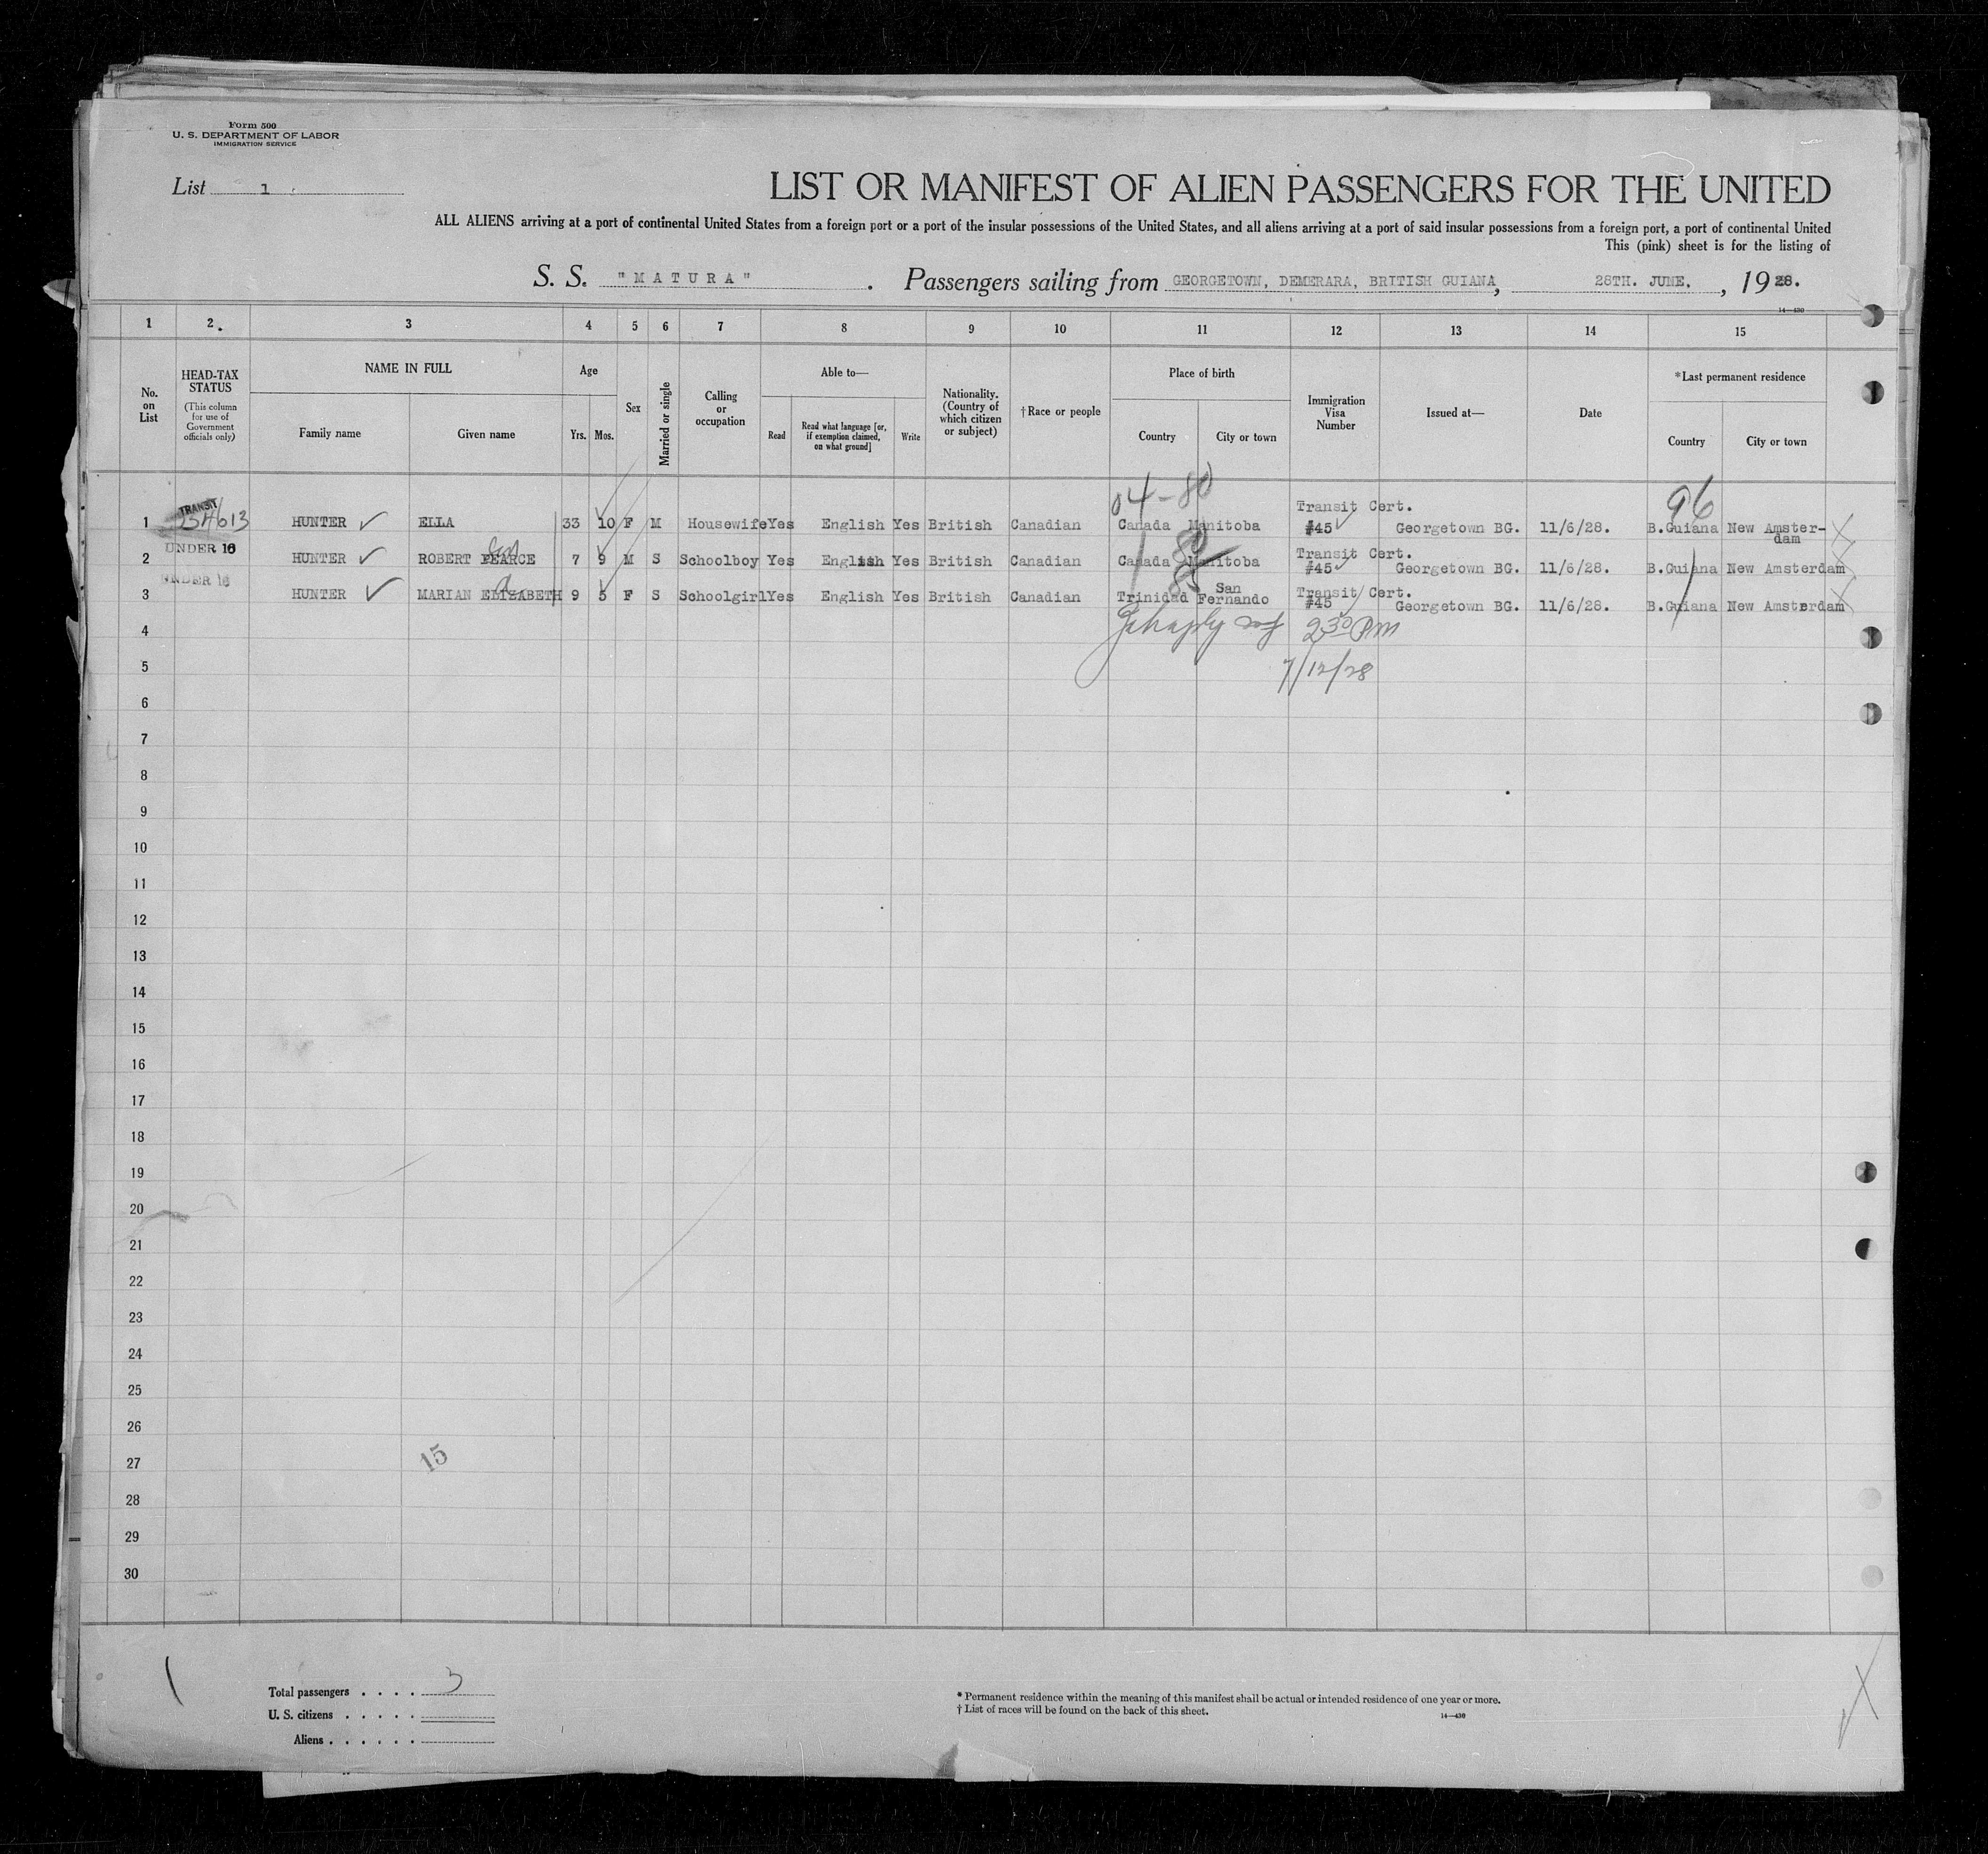 Form 500
U. S. DEPARTMENT OF LABOR
IMMIGRATION SERVICE
List 1
LIST OR MANIFEST OF ALIEN PASSENGERS FOR THE UNITED
ALL ALIENS arriving at a port of continental United States from a foreign port or a port of the insular possessions of the United States, and all aliens arriving at a port of said insular possessions from a foreign port, a port of continental United
This (pink) sheet is for the listing of
S. S. "MATURA" . Passengers sailing from GEORGETOWN, DEMERARA, BRITISH GUIANA, 28TH. JUNE. , 1928.
14—430
1 2. 3 4 5 6 7 8 9 10 11 12 13 14 15
No. on List
HEAD-TAX STATUS
(This column for use of Government officials only)
NAME IN FULL
Family name
Given name
Age
Yrs. Mos.
Sex
Married or single
Calling or occupation
Able to—
Read
Read what language [or, if exemption claimed, on what ground]
Write
Nationality. (Country of which citizen or subject)
†Race or people
Place of birth
Country
City or town
Immigration Visa Number
Issued at—
Date
*Last permanent residence
Country
City or town
04-80
96
TRANSIT
Transit Cert.
1 HUNTER ELLA 33 10 F M Housewife Yes English Yes British Canadian Canada Manitoba #45 Georgetown BG. 11/6/28. B.Guiana New Amster-
dam
UNDER 16
80
Transit Cert.
2 HUNTER ROBERT PEARCE 7 9 M S Schoolboy Yes English Yes British Canadian Canada Manitoba #45 Georgetown BG. 11/6/28. B.Guiana New Amsterdam
UNDER 16
85
San
Transit Cert.
3 HUNTER MARIAN ELIZABETH 9 5 F S Schoolgirl Yes English Yes British Canadian Trinidad Fernando #45 Georgetown BG. 11/6/28. B.Guiana New Amsterdam
4
2 30 PM
5
7/12/28
6
7
8
9
10
11
12
13
14
15
16
17
18
19
20
21
22
23
24
25
26
27
15
28
29
30
Total passengers . . . . 3
U. S. citizens . . . . .
Aliens . . . . . .
* Permanent residence within the meaning of this manifest shall be actual or intended residence of one year or more.
† List of races will be found on the back of this sheet.
14—430